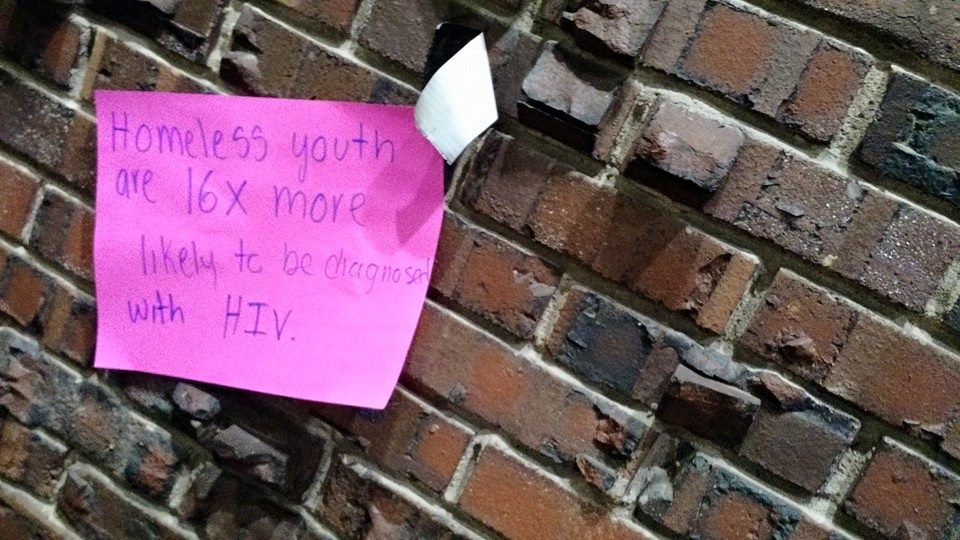 Homeless youth
are 16x more
likely to be diagnosed
with HIV.